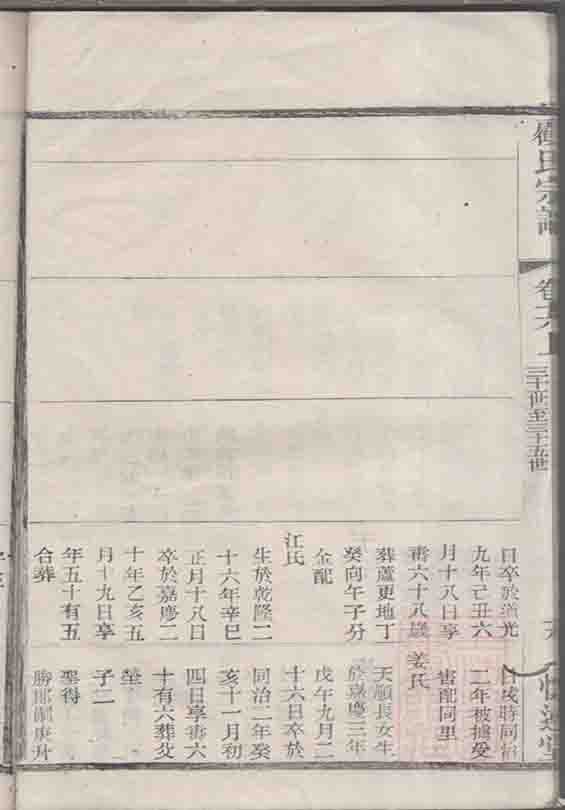 氏宗譜
卷六上
三十世至三十五世
日卒於道光
九年己丑六
月十八日享
壽六十八歲
葬蘆更地丁
癸向午子分
金配
江氏
生於乾隆二
十六年辛巳
正月十八日
卒於嘉慶二
十年乙亥五
月十九日享
年五十有五
合葬
同治
二年被擄受
害配同里
姜氏
天順長女生
於嘉慶三年
戊午九月二
十六日卒於
同治二年癸
亥十一月初
四日享壽六
十有六葬父
塋
子二
聖得
勝郎嗣庚升